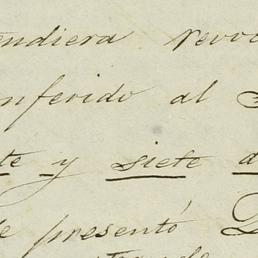 endiera revo
nferido al
te y siete d
e presentó D